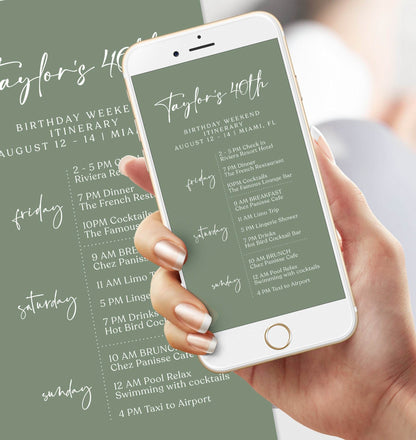 Taylor's 40th
BIRTHDAY WEEKEND
ITINERARY
AUGUST 12 - 14 |
2 - 5 PM
Riviera
friday
7 PM Dinner
The French
10PM Cocktails
The Famous
9 AM BREAKFAST
Chez Panisse
saturday
11 AM Limo
5 PM Lingerie
7 PM Drinks
Hot Bird Cocktail
10 AM BRUNCH
Chez Panisse Cafe
sunday
12 AM Pool Relax
Swimming with cocktails
4 PM Taxi to Airport
Taylor's 40th
BIRTHDAY WEEKEND
ITINERARY
AUGUST 12 - 14 | MIAMI, FL
2 - 5 PM Check in
Riviera Resorts Hotel
friday
7 PM Dinner
The French Restaurant
10PM Cocktails
The Famous Lounge Bar
9 AM BREAKFAST
Chez Panisse Cafe
saturday
11 AM Limo Trip
5 PM Lingerie Shower
7 PM Drinks
Hot Bird Cocktail Bar
10 AM BRUNCH
Chez Panisse Cafe
sunday
12 AM Pool Relax
Swimming with cocktails
4 PM Taxi to Airport